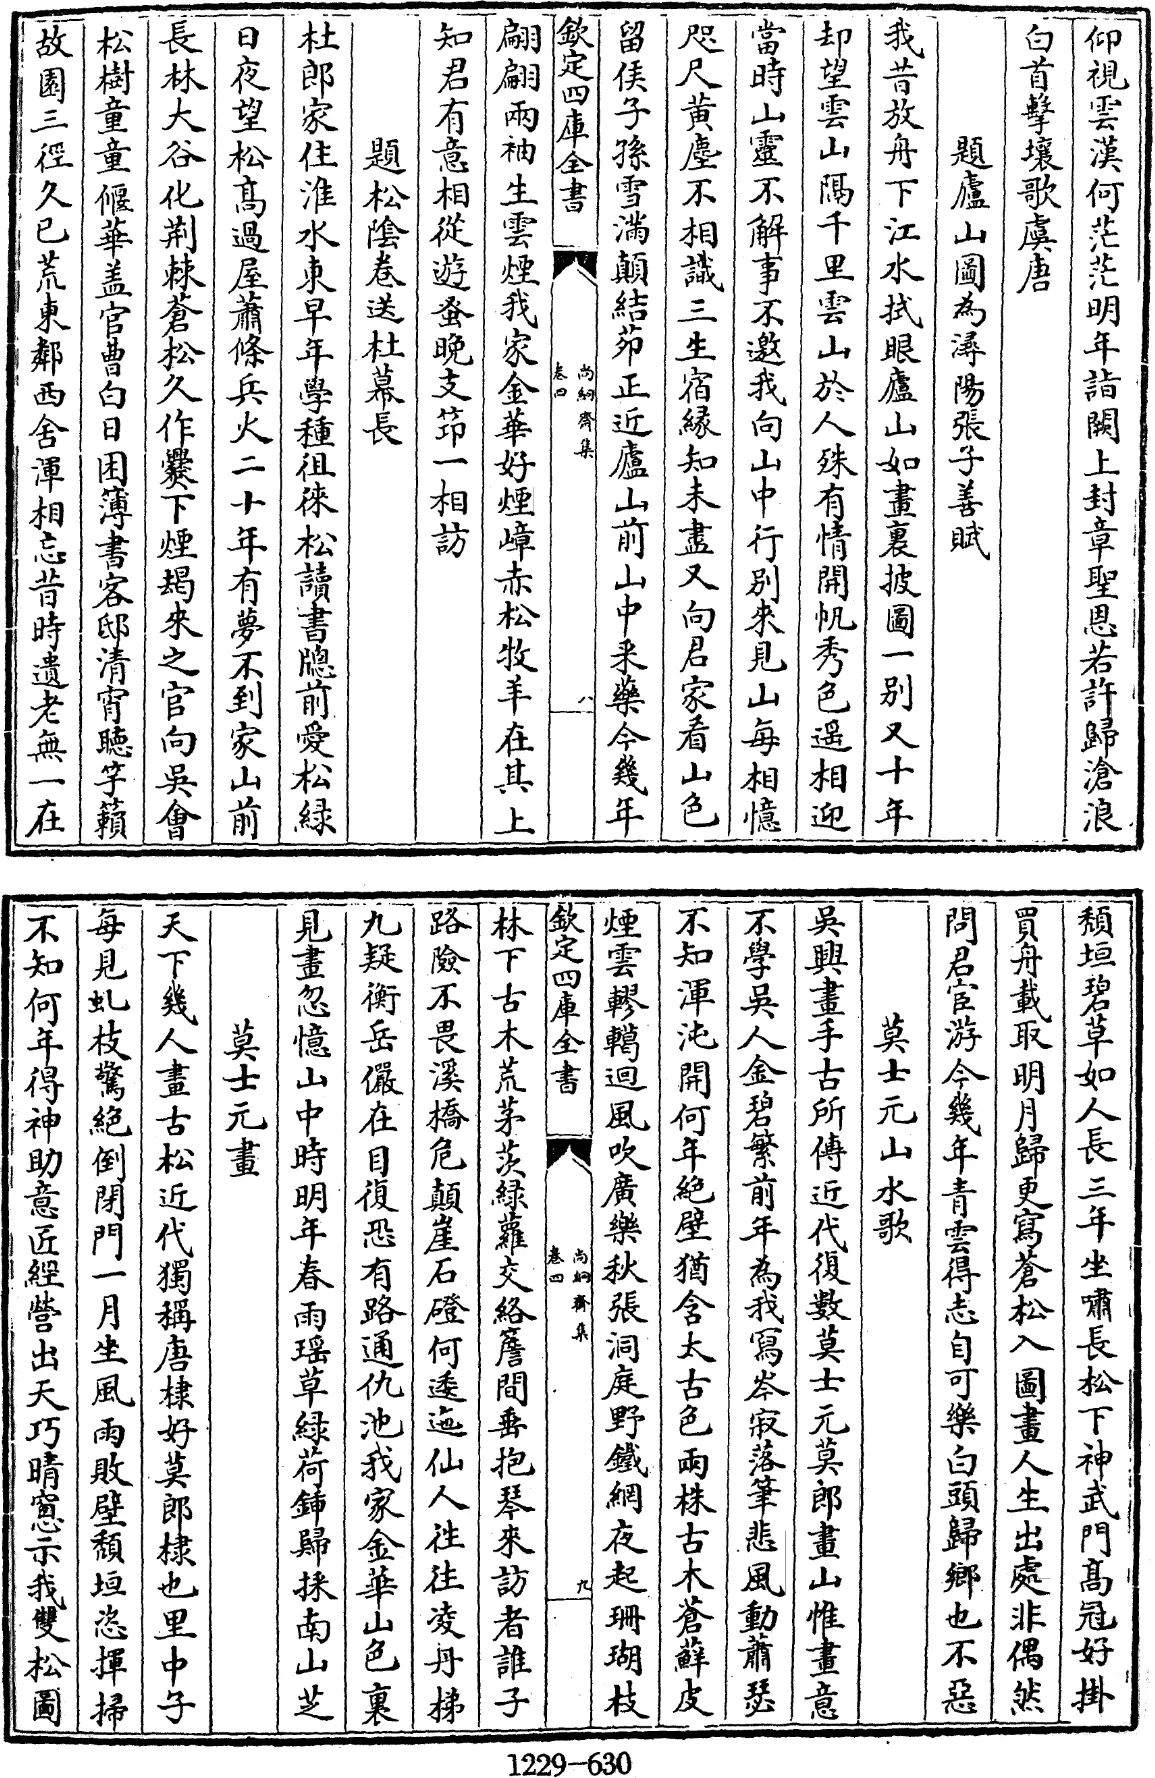 仰視雲漢何茫茫明年詣闕上封章聖恩若許歸滄浪
白首擊壤歌虞唐
題廬山圖為潯陽張子善賦
我昔放舟下江水拭眼廬山如畫裏披圖一別又十年
却望雲山隔千里雲山於人殊有情開帆秀色遥相迎
當時山靈不解事不邀我向山中行別來見山每相憶
咫尺黄塵不相識三生宿縁知未盡又向君家看山色
留侯子孫雪滿顛結茆正近廬山前山中采藥今幾年
欽定四庫全書
尚絅齋集
卷四
八
翩翩兩袖生雲煙我家金華好煙嶂赤松牧羊在其上
知君有意相從遊蚤晚支笻一相訪
題松陰卷送杜幕長
杜郎家住淮水東早年學種徂徠松讀書牕前愛松緑
日夜望松髙過屋蕭條兵火二十年有夢不到家山前
長林大谷化荆棘蒼松久作爨下煙朅來之官向吳會
松樹童童偃華盖官曹白日困簿書客邸清宵聴竽籟
故園三徑久已荒東鄰西舍渾相忘昔時遺老無一在
頽垣碧草如人長三年坐嘯長松下神武門髙冠好掛
買舟載取明月歸更寫蒼松入圖畫人生出處非偶然
問君宦游今幾年青雲得志自可樂白頭歸鄉也不惡
莫士元山水歌
吳興畫手古所傳近代復數莫士元莫郎畫山惟畫意
不學吳人金碧繁前年為我寫岑寂落筆悲風動蕭瑟
不知渾沌開何年絶壁猶含太古色兩株古木蒼蘚皮
煙雲轇轕迴風吹廣樂秋張洞庭野鐵網夜起珊瑚枝
欽定四庫全書
尚絅齋集
卷四
九
林下古木荒茅茨緑蘿交絡簷間垂抱琴來訪者誰子
路險不畏溪橋危顛崖石磴何逶迤仙人往往凌丹梯
九疑衡岳儼在目復恐有路通仇池我家金華山色裏
見畫忽憶山中時明年春雨瑶草緑荷鍤歸採南山芝
莫士元畫
天下幾人畫古松近代獨稱唐棣好莫郎棣也里中子
每見虬枝驚絶倒閉門一月坐風雨敗壁頽垣恣揮掃
不知何年得神助意匠經營出天巧晴窻示我雙松圖
1229-630